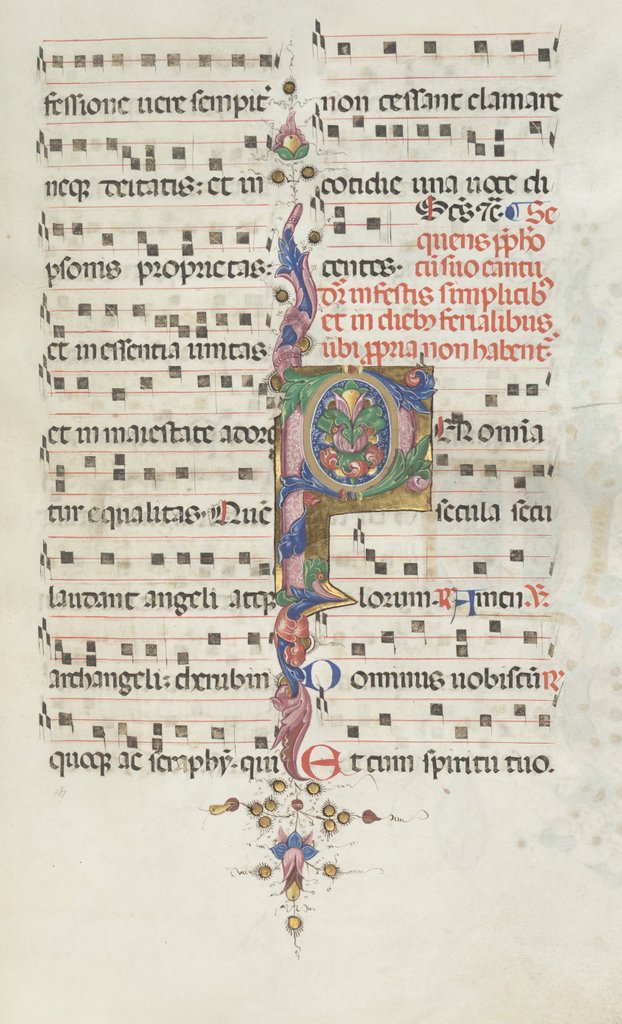 fessione uere sempit̄
neqȝ deitatis: et in
psonis proprietas:
et in essentia unitas
et in maiestate adore
tur equalitas. Quē
laudant angeli atqȝ
archangeli: cherubin
quoqȝ ac seraphȳ. qui
non cessant clamare
cotidie una uoce di
Scs̄. Se
centes. quens p̱p̱hō
cū suo cantu
dr̄ in festis simplicibꝰ
et in diebꝰ ferialibus
ubi p̱p̱ria non habent̄.
PER omnia
secula secu
lorum. ℟ Amen. ℣.
Dominus uobiscū ℟
Et cum spiritu tuo.